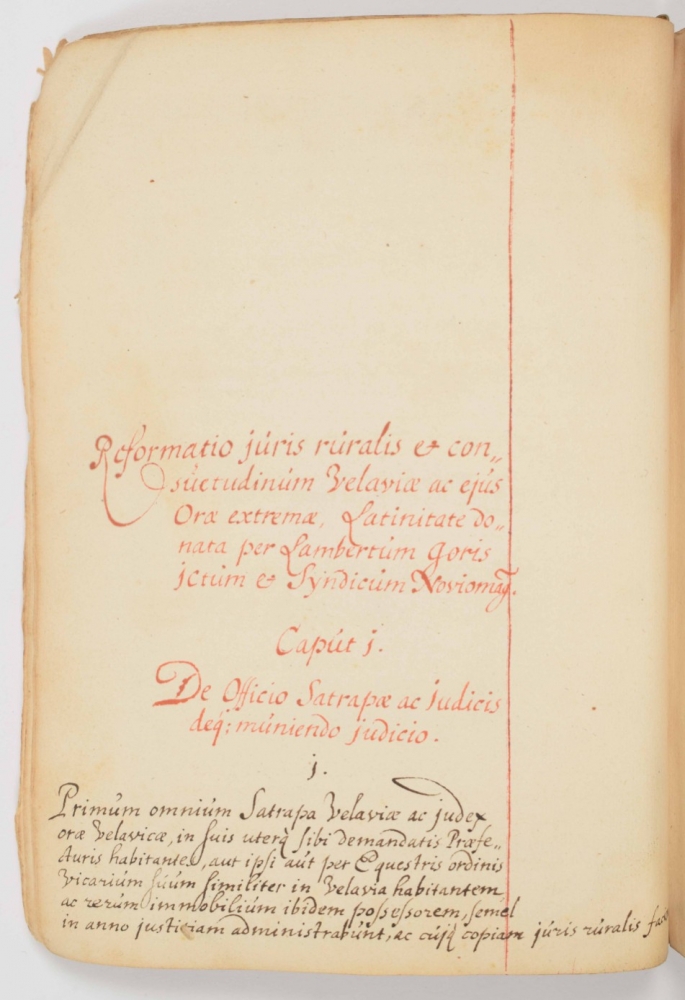 Reformatio júris rúralis et con„
súetudinúm Velaviæ ac ejús
Oræ extremæ, Latinitate do„
nata per Lambertúm Goris
jctúm et Syndicúm Noviomag.
Capút j.
De Officio Satrapæ ac Judicis
deq; múniendo júdicio.
j.
Primúm omniúm Satrapa Velaviæ ac júdex
oræ Velavicæ, in súis uterq sibi demandatis Præfe„
cturis habitantes, aut ipsi aút per Equestris ordinis
vicariúm súúm similiter in Velavia habitantem
ac rerúm immobiliúm ibidem possessorem, semel
in anno justitiam administrabúnt, ac cújq copiam júris rúralis